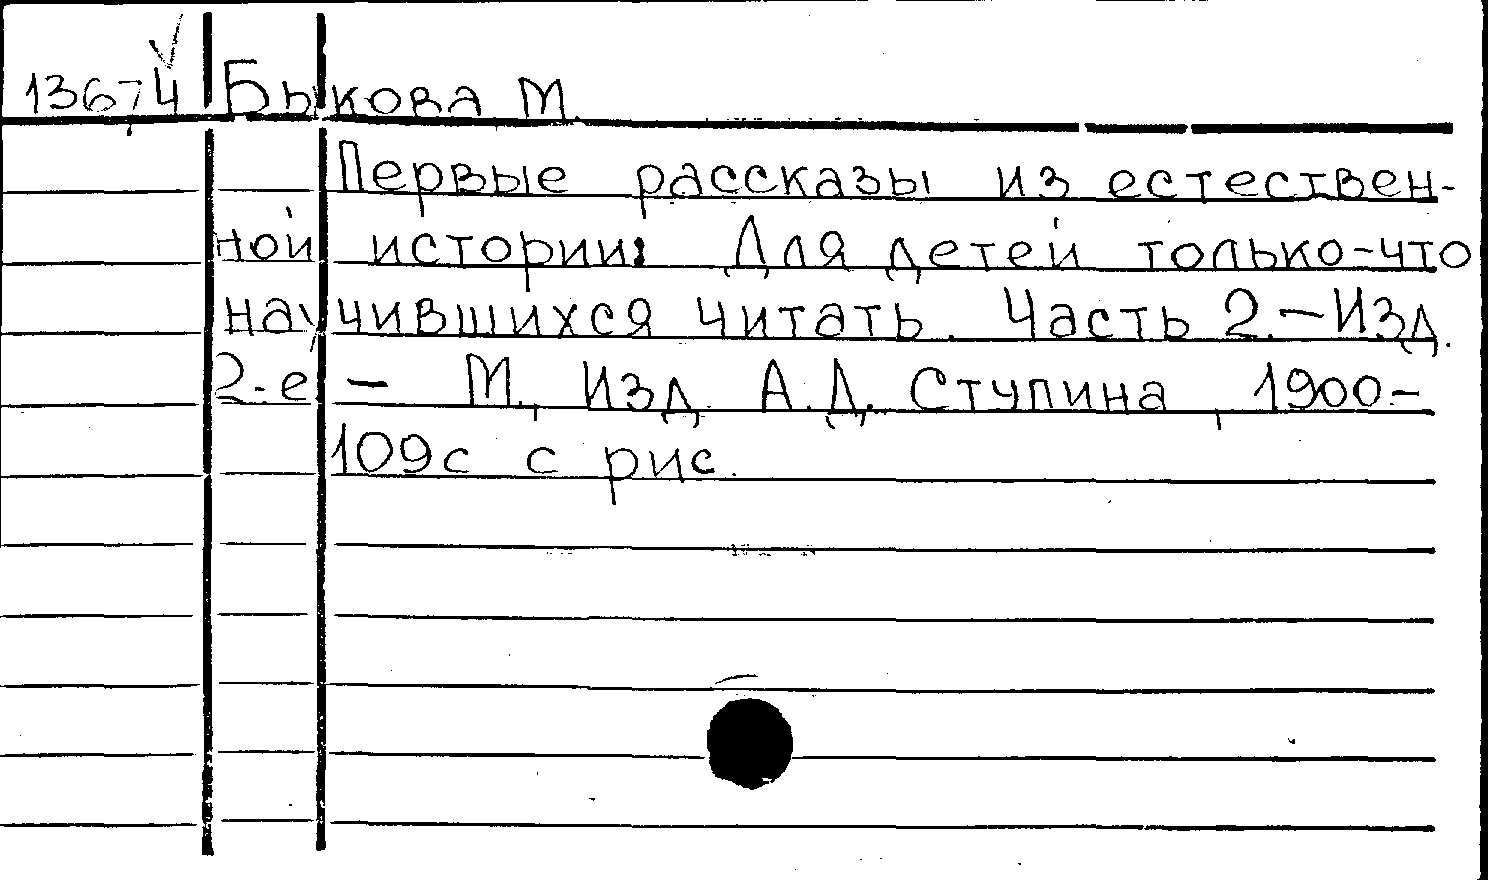 13674 Быкова М.
Первые рассказы из естествен-
ной истории: Для детей только-что
научившихся читать. Часть 2.-Изд.
2-е - М., Изд. А.Д. Ступина, 1900-
109с с рис.